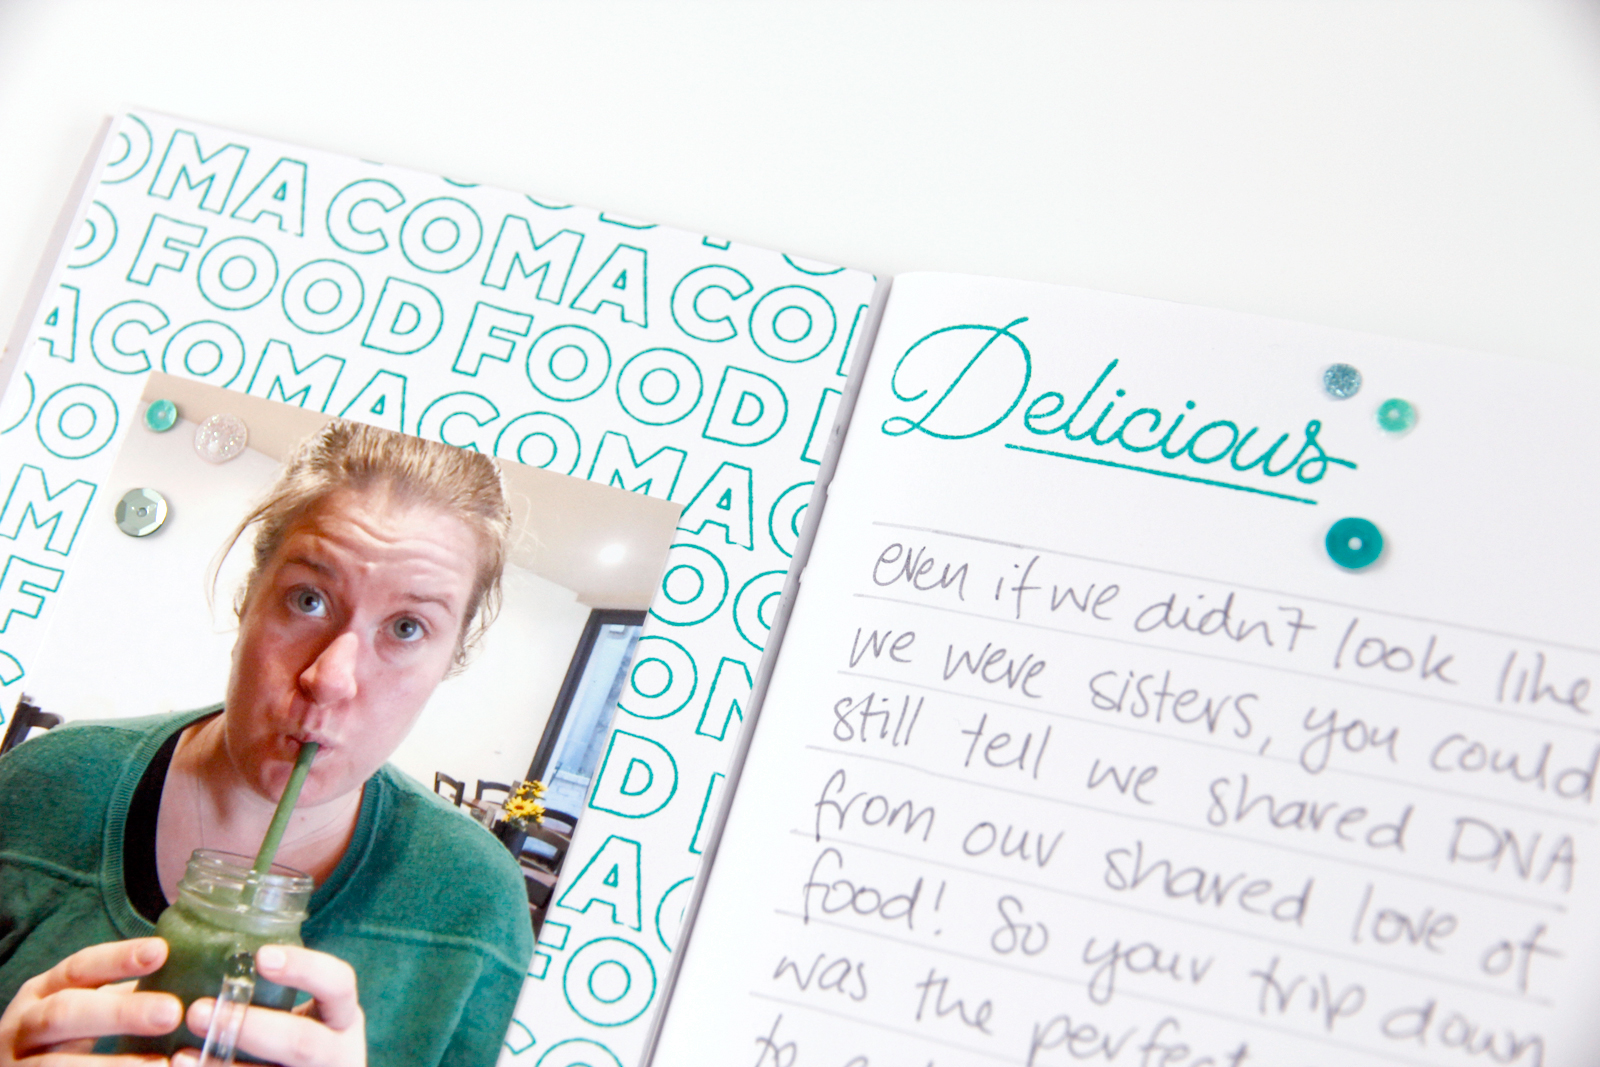 OMACOMACO
FOOD FOOD
ACOMACOMACO
OO
M
F
OO
ON
D
AC
FO
CO
Delicious
even if we didn't look like
we were sisters, you could
still tell we shared DNA
from our shared love of
food! So your trip down
was the perfect
to